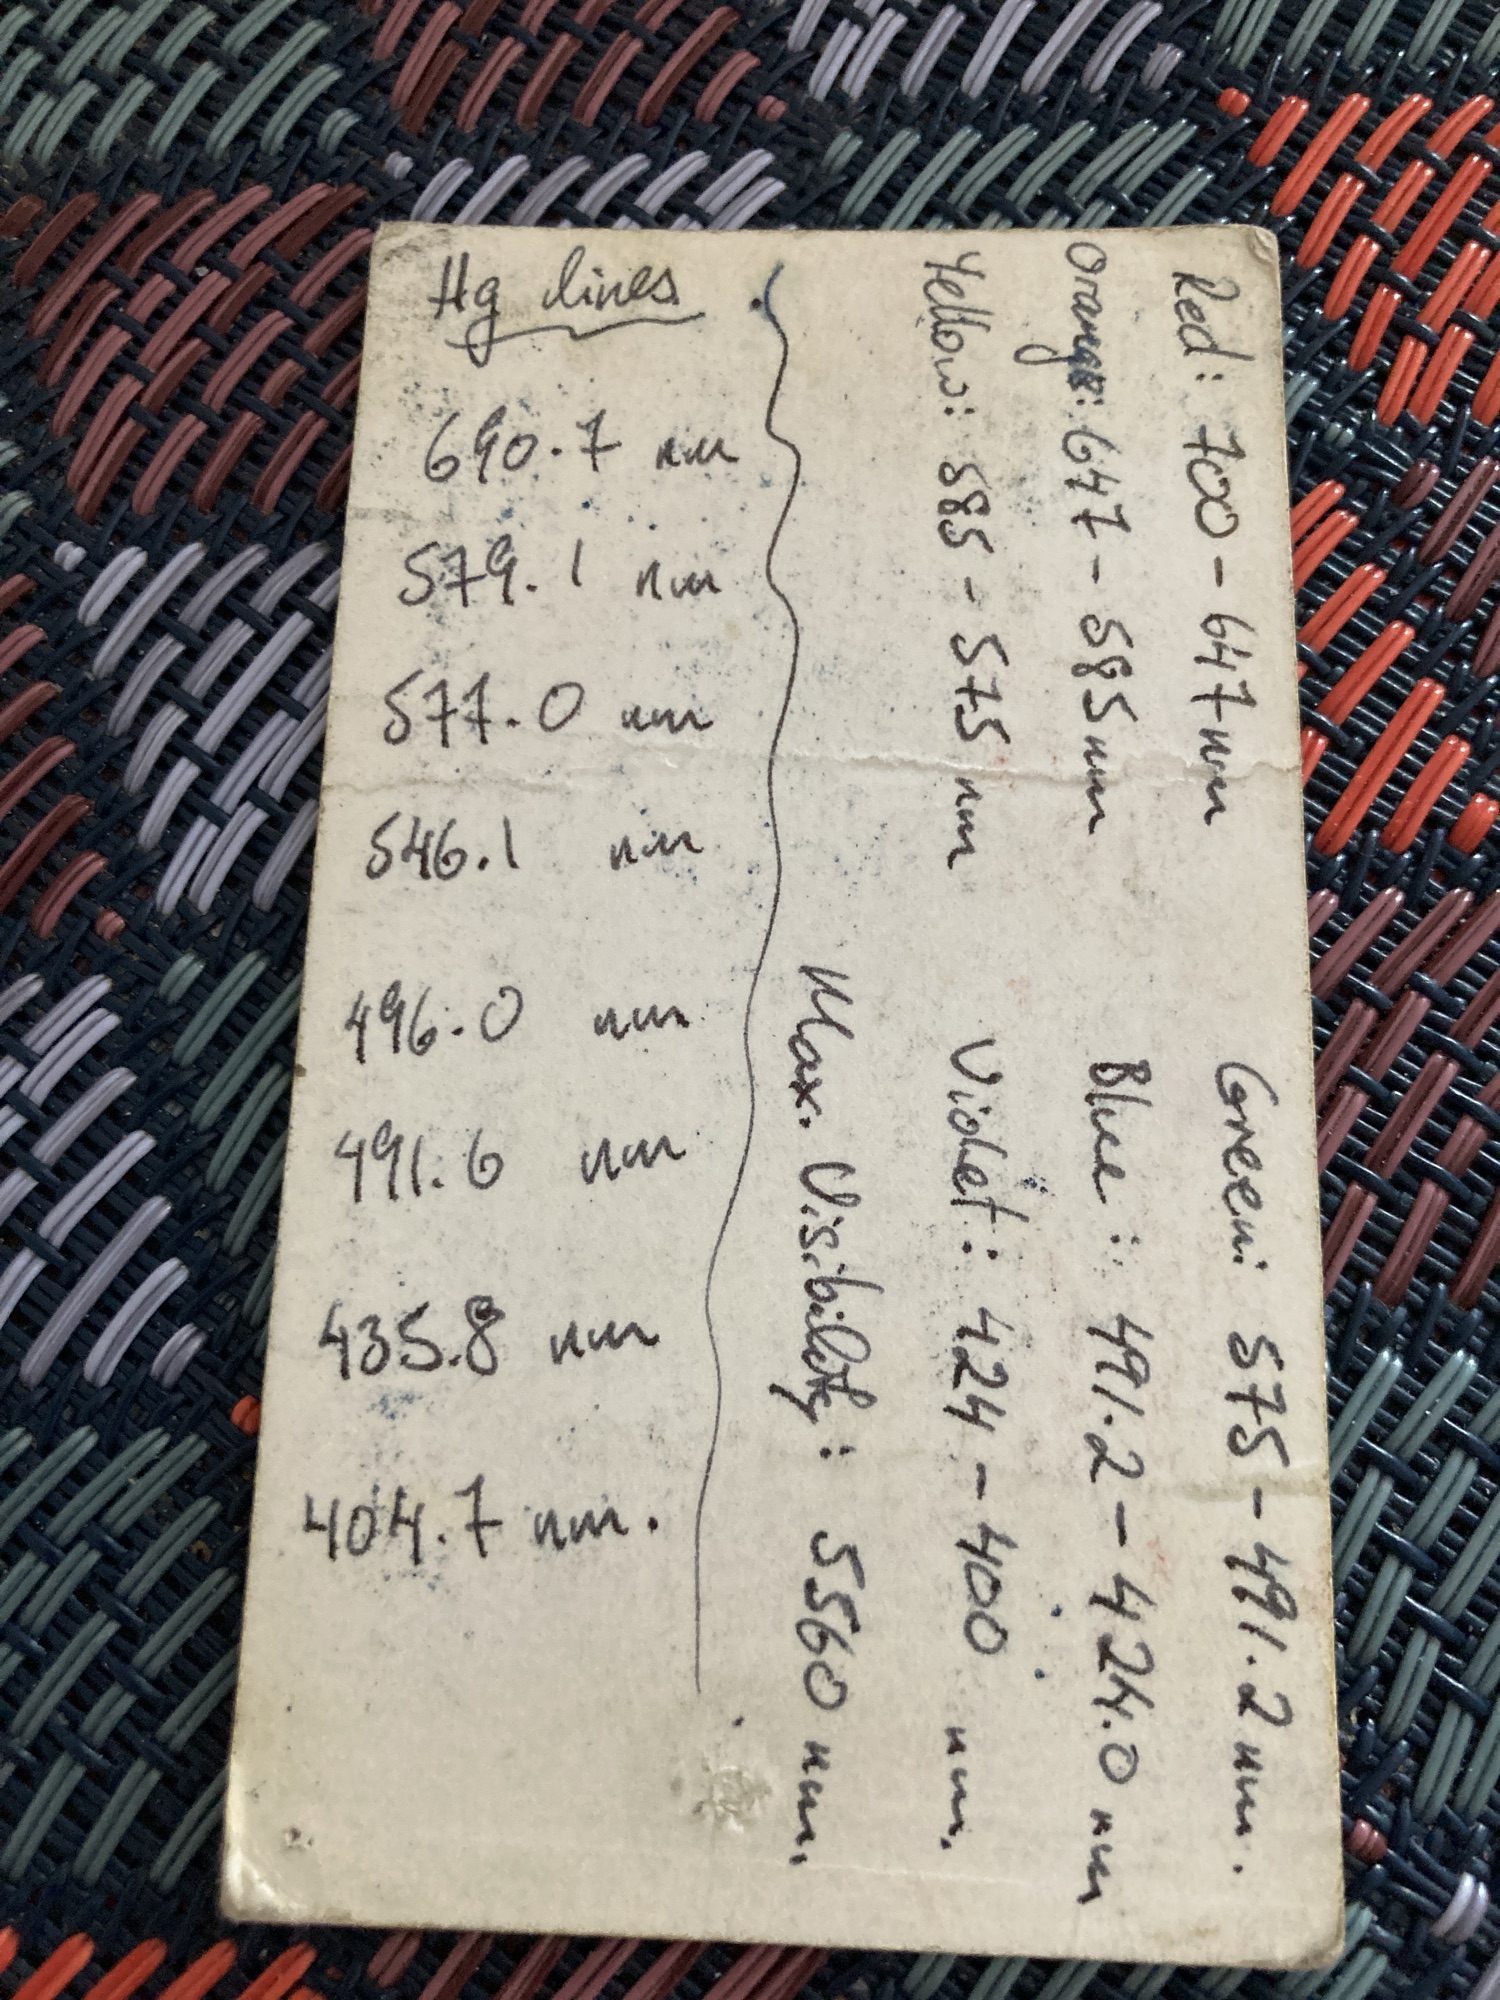 Hg lines
690.7 nm
579.1 nm
577.0 nm
546.1 nm
496.0 nm
491.6 nm
435.8 nm
404.7 nm.
Red: 700 - 647 nm
Orange: 647 - 585 nm
Yellow: 585 - 575 nm
Green: 575 - 491.2 nm.
Blue: 491.2 - 424.0 nm
Violet: 424 - 400 nm.
Max. Visibility: 5560 nm.